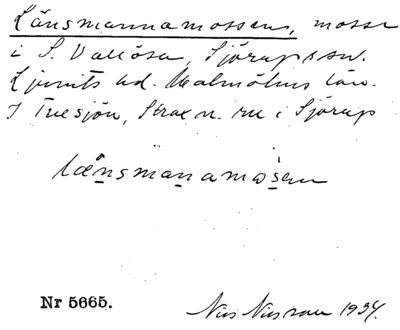 Länsmannamossen, mosse
i S. Vallösa, Sjörups sn.
Ljunits hd. Malmöhus län.
I Tuesjön, Strax n. m i Sjörup
länsmanamosen
Nr 5665.
Nils Nilsson 1934.